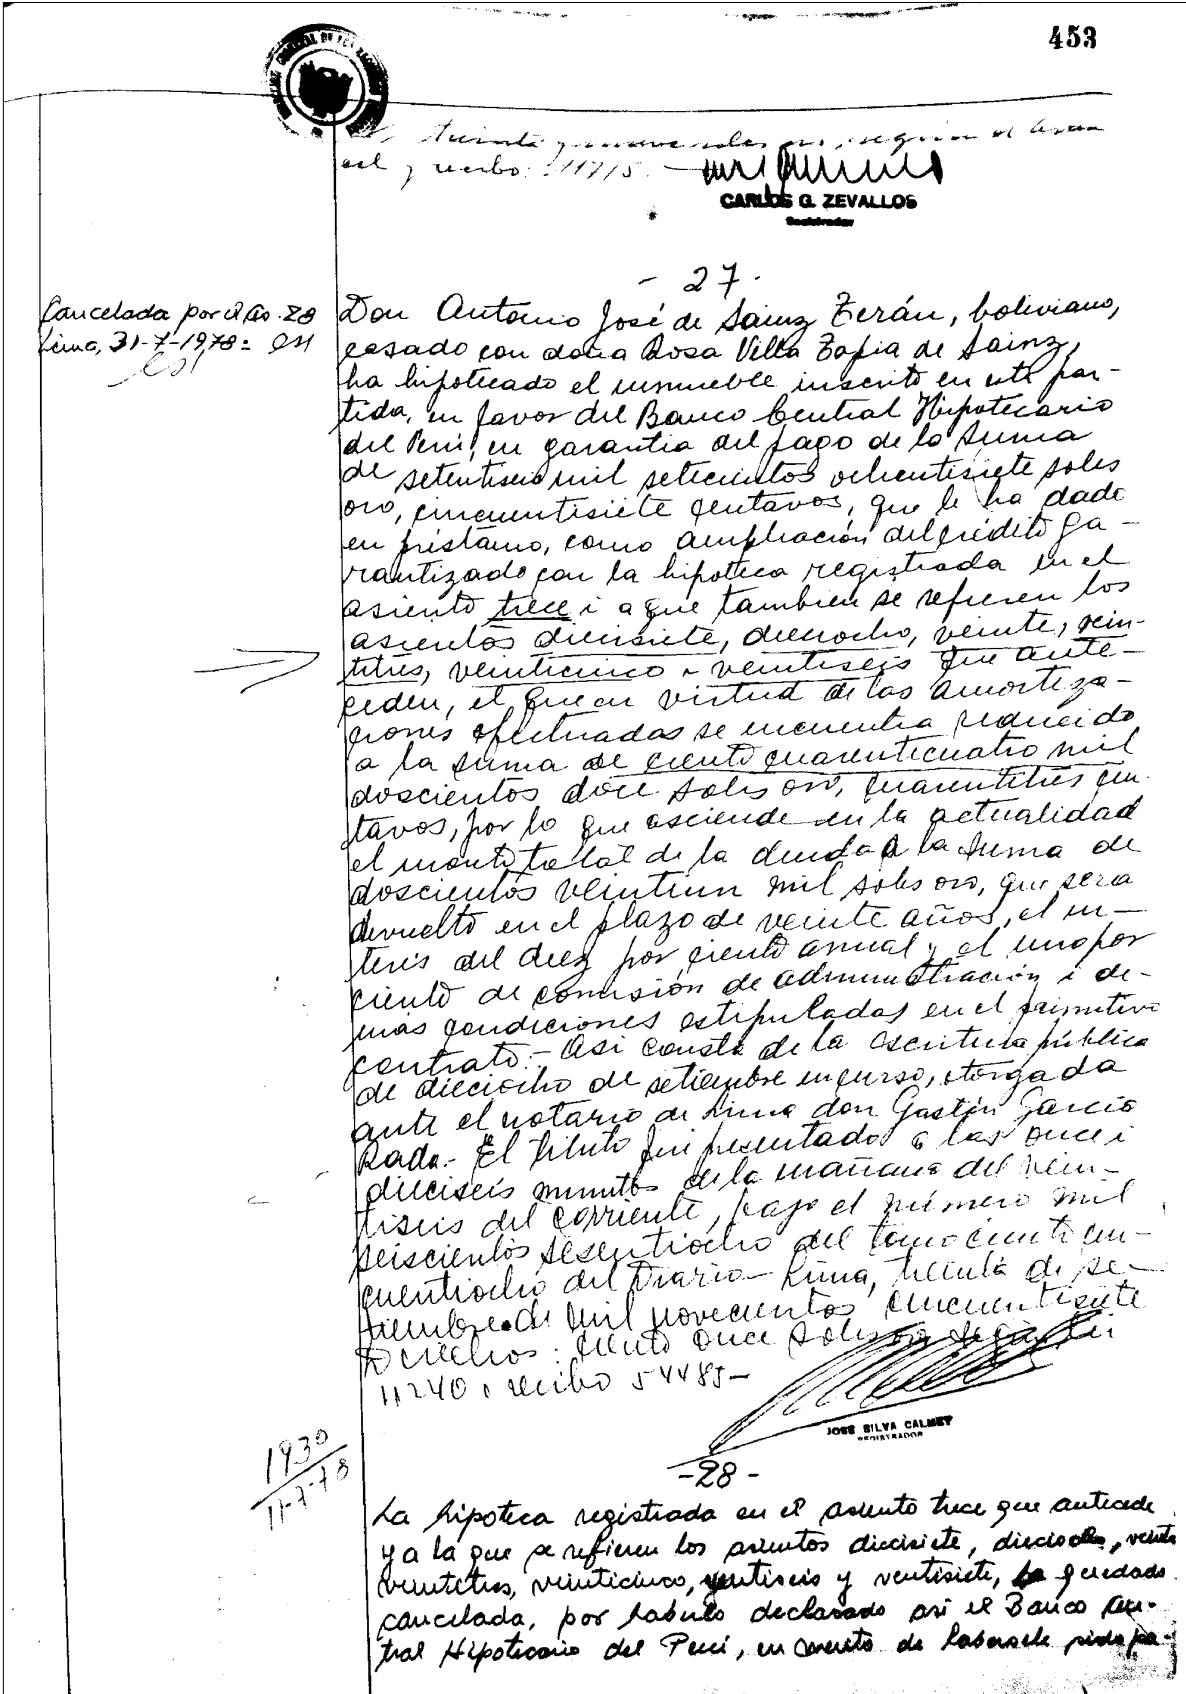 453
treinta y nueve soles oro, según el aran
cel y recibo: 11715.-
CARLOS G. ZEVALLOS
Registrador
- 27.
Cancelada por el As. 28
Lima, 31-7-1978=
Don Antonio José de Sainz Terán, boliviano,
casado con doña Rosa Villa Tapia de Sainz,
ha hipotecado el inmueble inscrito en esta par-
tida, en favor del Banco Central Hipotecario
del Perú, en garantia del pago de la suma
de setentiseis mil setecientos ochentisiete soles
oro, cincuentisiete centavos, que le ha dado
en préstamo, como ampliación del crédito ga-
rantizado con la hipoteca registrada en el
asiento trece i a que tambien se refieren los
asientos diecisiete, dieciocho, veinte, vein-
titrés, veinticinco i veintiseis que ante-
ceden, el que en virtud de las amortiza-
ciones efectuadas se encuentra reducido
a la suma de ciento cuarenticuatro mil
doscientos doce soles oro, cuarentitres cen
tavos, por lo que asciende en la actualidad
el monto total de la deuda a la suma de
doscientos veintiun mil soles oro, que sera
devuelto en el plazo de veinte años, el in-
terés del diez por ciento anual y el uno por
ciento de comisión de administración i de-
mas condiciones estipuladas en el primitivo
contrato.- Asi consta de la escritura pública
de dieciocho de setiembre en curso, otorgada
ante el notario de Lima don Gastón García
Rada.- El título fue presentado a las once i
dieciseis minutos de la mañana del vein-
tiseis del corriente, bajo el número mil
seiscientos sesentiocho del tomo ciento cin-
cuentiocho del Diario.- Lima, treinta de se-
tiembre de mil novecientos cincuentisiete
Derechos: ciento once soles oro según
11240 i recibo 54485-
JOSE SILVA CALMET
REGISTRADOR
1930
11-7-78
-28-
La hipoteca registrada en el asiento trece que antecede
y a la que se refieren los asientos diecisiete, dieciocho, veinte
veintitres, veinticinco, ventiseis y ventisiete, ha quedado
cancelada, por haberlo declarado asi el Banco Cen-
tral Hipotecario del Perú, en mérito de habersele pa-